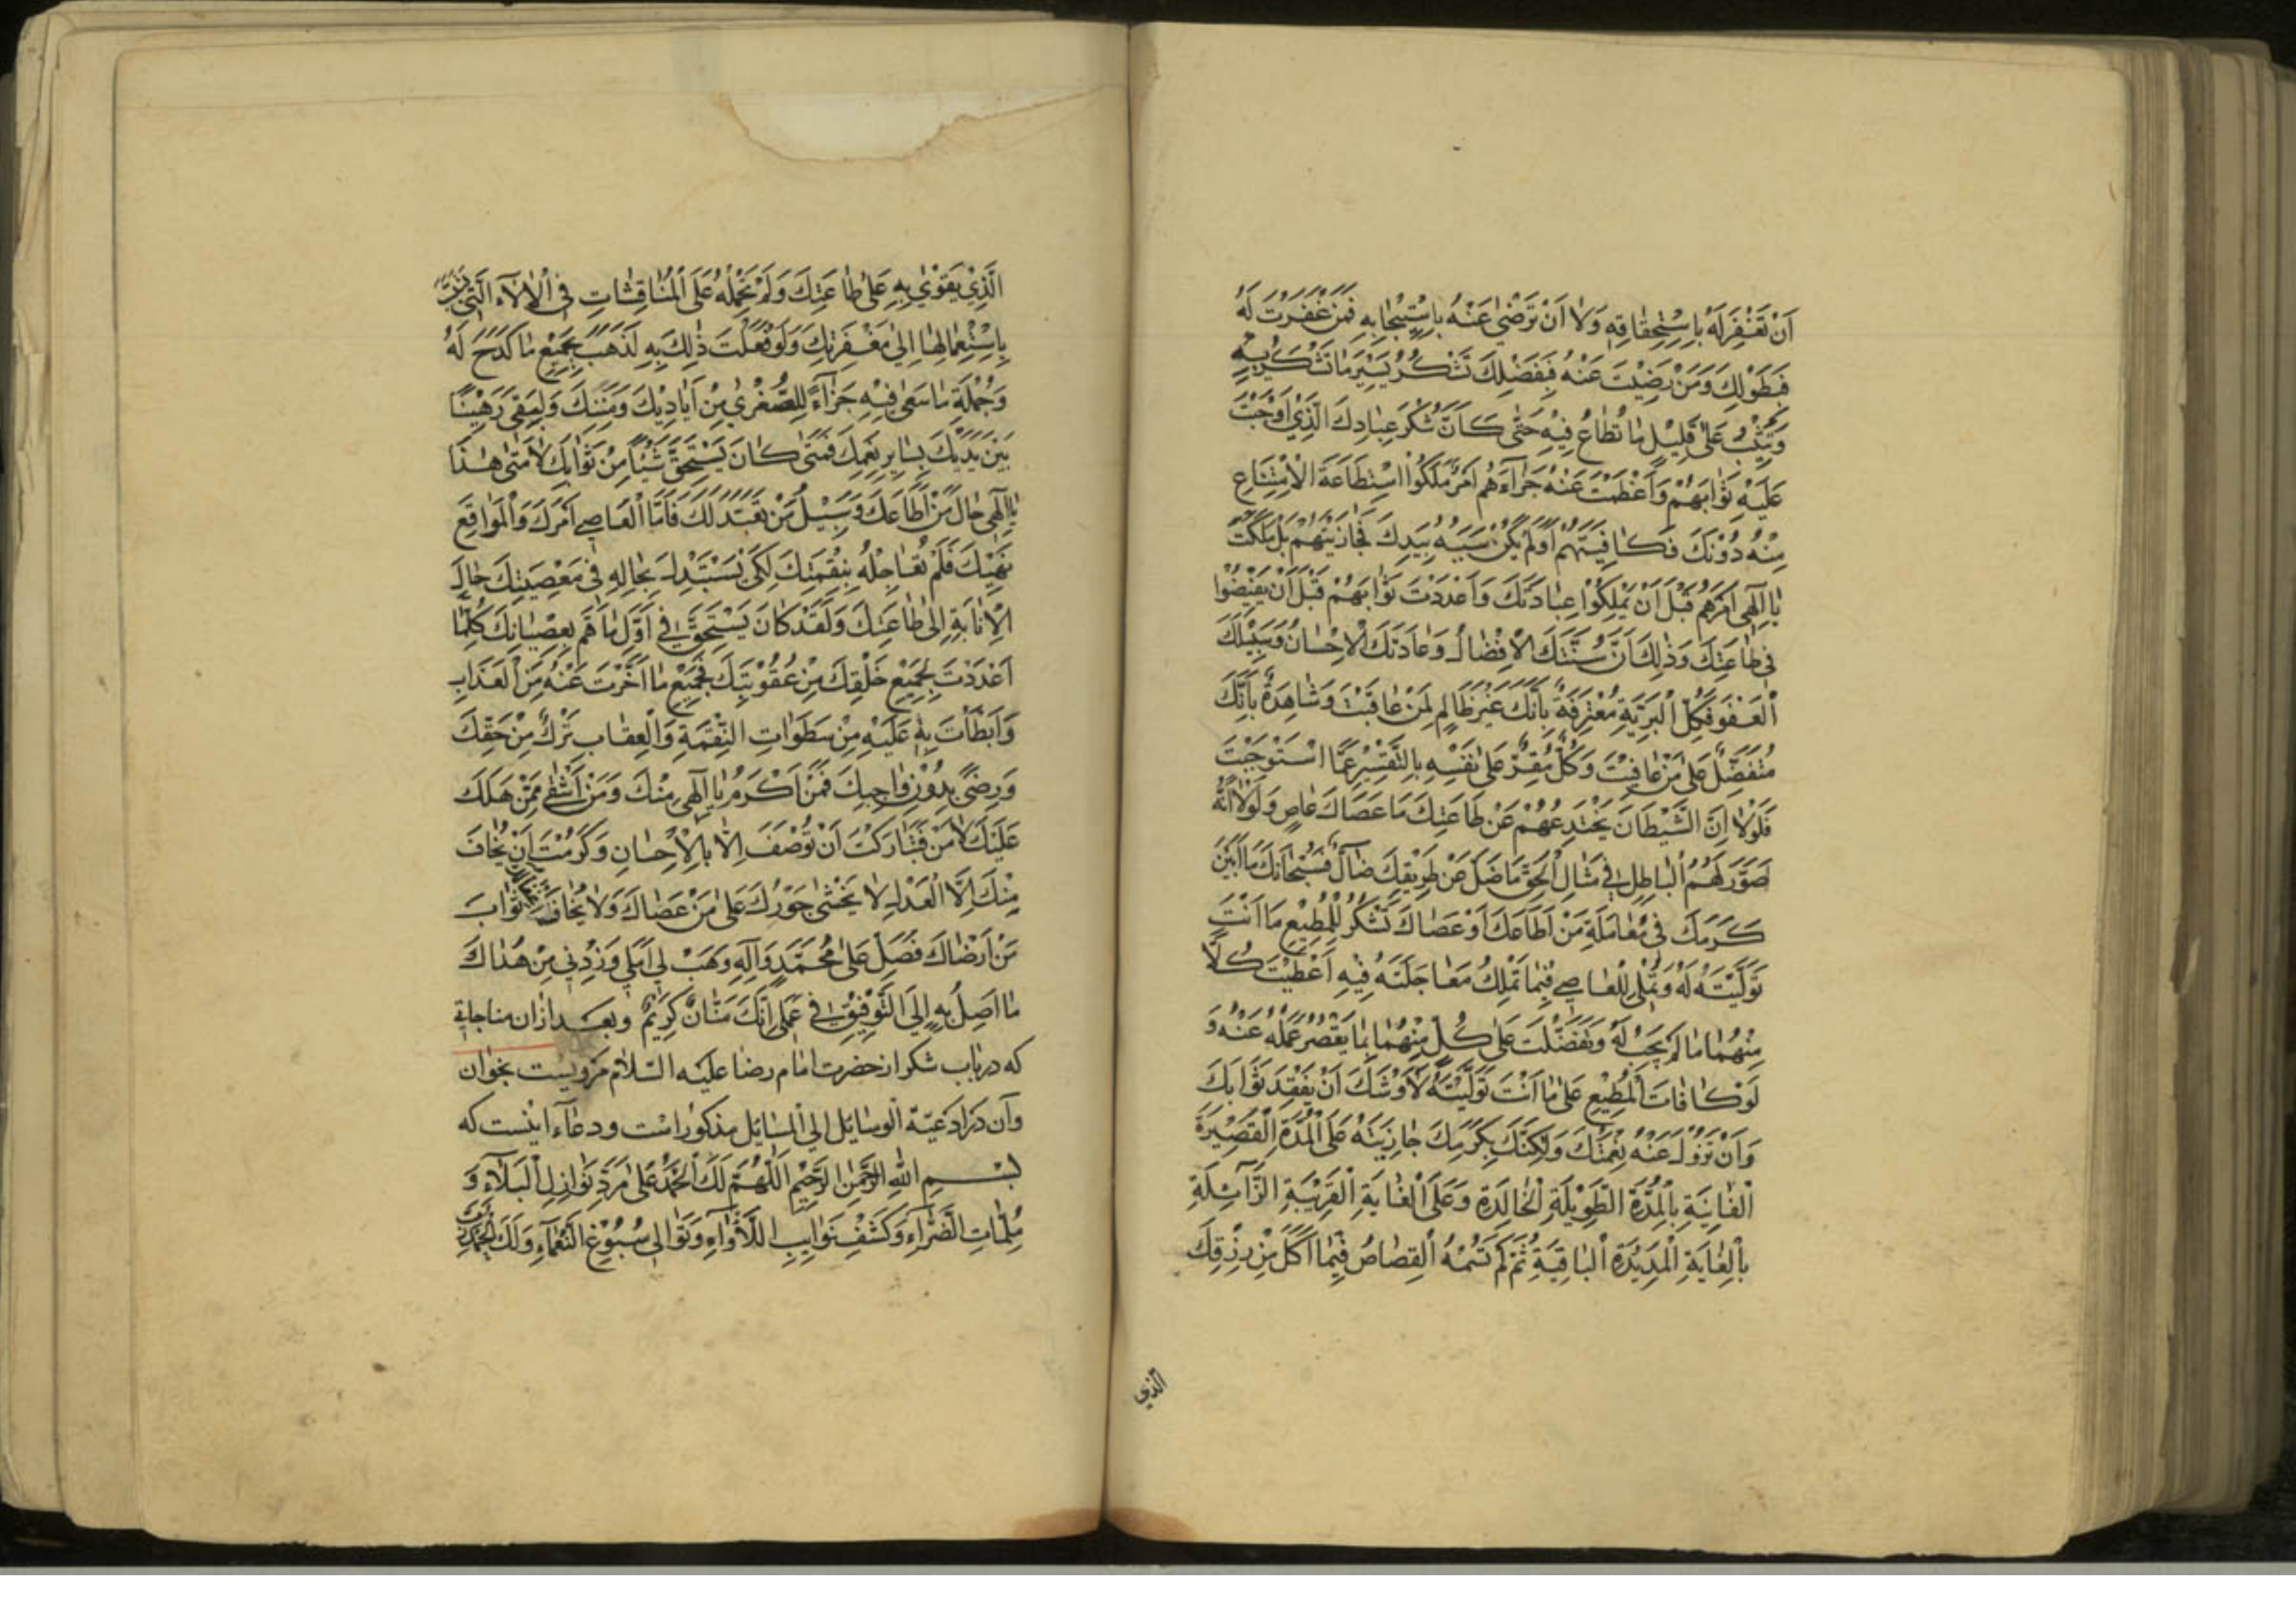 اَنْ تَغْفِرَ لَهُ بِاسْتِحِقَاقِهِ وَلَا اَنْ تَرْضٰى عَنْهُ بِاسْتِيْجَابِهِ فَمَنْ غَفَرْتَ لَهُ
فَبِطَوْلِكَ وَمَنْ رَضِيْتَ عَنْهُ فَبِفَضْلِكَ تَشْكُرُ يَسْيَرَ مَا تَشْكُرُ بِهِ
وَتُثِيْبُ عَلٰى قَلِيْلِ مَا تُطَاعُ فِيْهِ حَتّٰى كَاَنَّ شُكْرَ عِبَادِكَ الَّذِيْ اَوْجَبْتَ
عَلَيْهِ ثَوَابَهُمْ وَاَعْظَمْتَ عَنْهُ جَزَآءَهُمْ اَمْرٌ مَلَكُوْا اسْتِطَاعَةَ الْاِمْتِنَاعِ
مِنْهُ دُوْنَكَ فَكَافَيْتَهُمْ اَوْلَمْ يَكُنْ سَبَبُهُ بِيَدِكَ فَجَازَيْتَهُمْ بَلْ مَلَكْتَ
يَا اِلٰهِى اَمْرَهُمْ قَبْلَ اَنْ يَمْلِكُوْا عِبَادَتَكَ وَاَعْدَدْتَ ثَوَابَهُمْ قَبْلَ اَنْ يُفِيْضُوْا
فِى طَاعَتِكَ وَذٰلِكَ اَنَّ سُنَّتَكَ الْاِفْضَالُ وَعَادَتَكَ الْاِحْسَانُ وَسَبِيْلَكَ
الْعَفْوُ فَكُلُّ الْبَرِيَّةِ مُعْتَرِفَةٌ بِاَنَّكَ غَيْرُ ظَالِمٍ لِمَنْ عَاقَبْتَ وَشَاهِدَةٌ بِاَنَّكَ
مُتَفَضِّلٌ عَلٰى مَنْ عَافَيْتَ وَكُلٌّ مُقِرٌّ عَلٰى نَفْسِهِ بِالتَّقْصِيْرِ عَمَّا اسْتَوْجَبْتَ
فَلَوْلَا اِنَّ الشَّيْطَانَ يَخْتَدِعُهُمْ عَنْ طَاعَتِكَ مَا عَصَاكَ عَاصٍ وَلَوْلَا اَنَّهُ
صَوَّرَ لَهُمُ الْبَاطِلَ فِى مِثَالِ الْحَقِّ مَا ضَلَّ عَنْ طَرِيْقِكَ ضَالٌّ فَسُبْحَانَكَ مَا اَبْيَنَ
كَرَمَكَ فِى مُعَامَلَةِ مَنْ اَطَاعَكَ اَوْ عَصَاكَ تَشْكُرُ لِلْمُطِيْعِ مَا اَنْتَ
تَوَلَّيْتَهُ لَهُ وَتُمْلِى لِلْعَاصِى فِيْمَا تَمْلِكُ مُعَاجَلَتَهُ فِيْهِ اَعْطَيْتَ كُلًّا
مِنْهُمَا مَا لَمْ يَجِبْ لَهُ وَتَفَضَّلْتَ عَلٰى كُلٍّ مِنْهُمَا بِمَا يَقْصُرُ عَمَلُهُ عَنْهُ وَ
لَوْ كَافَاتَ الْمُطِيْعَ عَلٰى مَا اَنْتَ تَوَلَّيْتَهُ لَاَوْشَكَ اَنْ يَفْقِدَ ثَوَابَكَ
وَاَنْ تَزُوْلَ عَنْهُ نِعْمَتُكَ وَلٰكِنَّكَ بِكَرَمِكَ جَازَيْتَهُ عَلَى الْمُدَّةِ الْقَصِيْرَةِ
الْفَانِيَةِ بِالْمُدَّةِ الطَّوِيْلَةِ الْخَالِدَةِ وَعَلَى الْغَايَةِ الْقَرِيْبَةِ الزَّآئِلَةِ
بِالْغَايَةِ الْمَدِيْدَةِ الْبَاقِيَةِ ثُمَّ لَمْ تَسُمْهُ الْقِصَاصَ فِيْمَا اَكَلَ مِنْ رِزْقِكَ
الذى
الَّذِيْ يَقْوٰى بِهِ عَلٰى طَاعَتِكَ وَلَمْ تَحْمِلْهُ عَلَى الْمُنَاقِشَاتِ فِى الْاٰلَآءِ الَّتِى
بِاسْتِعْمَالِهَا اِلٰى مَغْفِرَتِكَ وَلَوْ فَعَلْتَ ذٰلِكَ بِهِ لَذَهَبَ بِجَمِيْعِ مَا كَدَحَ لَهُ
وَجُمْلَةِ مَا سَعٰى فِيْهِ جَزَآءً لِلصُّغْرٰى مِنْ اَيَادِيْكَ وَمِنَنِكَ وَلَبَقِىَ رَهِيْنًا
بَيْنَ يَدَيْكَ بِسَايِرِ نِعَمِكَ فَمَتٰى كَانَ يَسْتَحِقُّ شَيْئًا مِنْ ثَوَابِكَ لَا مَتٰى هٰذَا
يَا اِلٰهِى حَالُ مَنْ اَطَاعَكَ وَسَبِيْلُ مَنْ تَعَبَّدَ لَكَ فَاَمَّا الْعَاصِى اَمْرَكَ وَالْمُوَاقِعُ
نَهْيَكَ فَلَمْ تُعَاجِلْهُ بِنِقْمَتِكَ لِكَىْ يَسْتَبْدِلَ بِحَالِهِ فِى مَعْصِيَتِكَ حَالَ
الْاِنَابَةِ اِلٰى طَاعَتِكَ وَلَقَدْ كَانَ يَسْتَحِقُّ فِى اَوَّلِ مَا هَمَّ بِعِصْيَانِكَ كُلَّمَا
اَعْدَدْتَ لِجَمِيْعِ خَلْقِكَ مِنْ عُقُوْبَتِكَ فَجَمِيْعُ مَا اَخَّرْتَ عَنْهُ مِنَ الْعَذَابِ
وَاَبْطَأْتَ بِهِ عَلَيْهِ مِنْ سَطَوَاتِ النِّقْمَةِ وَالْعِقَابِ تَرْكٌ مِنْ حَقِّكَ
وَرِضًى بِدُوْنِ وَاجِبِكَ فَمَنْ اَكْرَمُ يَا اِلٰهِى مِنْكَ وَمَنْ اَشْقٰى مِمَّنْ هَلَكَ
عَلَيْكَ لَا مَنْ فَتَبَارَكْتَ اَنْ تُوْصَفَ اِلَّا بِالْاِحْسَانِ وَكَرُمْتَ اَنْ يُخَافَ
مِنْكَ اِلَّا الْعَدْلُ لَا يُخْشٰى جَوْرُكَ عَلٰى مَنْ عَصَاكَ وَلَا يُخَافُ ثَوَابَ
مَنْ اَرْضَاكَ فَصَلِّ عَلٰى مُحَمَّدٍ وَاٰلِهِ وَهَبْ لِى اَمَلِى وَزِدْنِى مِنْ هُدَاكَ
مَا اَصِلُ بِهِ اِلَى التَّوْفِيْقِ فِى عَمَلِى اِنَّكَ مَنَّانٌ كَرِيْمٌ وبعد ازان مناجاتى
كه درباب شكر از حضرت امام رضا عليه السلام مرويست بخوان
وآن در ادعيّة الوسائل الى المسائل مذكور است ودعآء اينست كه
بِسْمِ اللهِ الرَّحْمٰنِ الرَّحِيْمِ اَللّٰهُمَّ لَكَ الْحَمْدُ عَلٰى مَرَدِّ نَوَازِلِ الْبَلَآءِ وَ
مُلِمَّاتِ الضَّرَّآءِ وَكَشْفِ نَوَايِبِ اللَّأْوَآءِ وَتَوَالِى سُبُوْغِ النَّعْمَآءِ وَلَكَ الْحَمْدُ